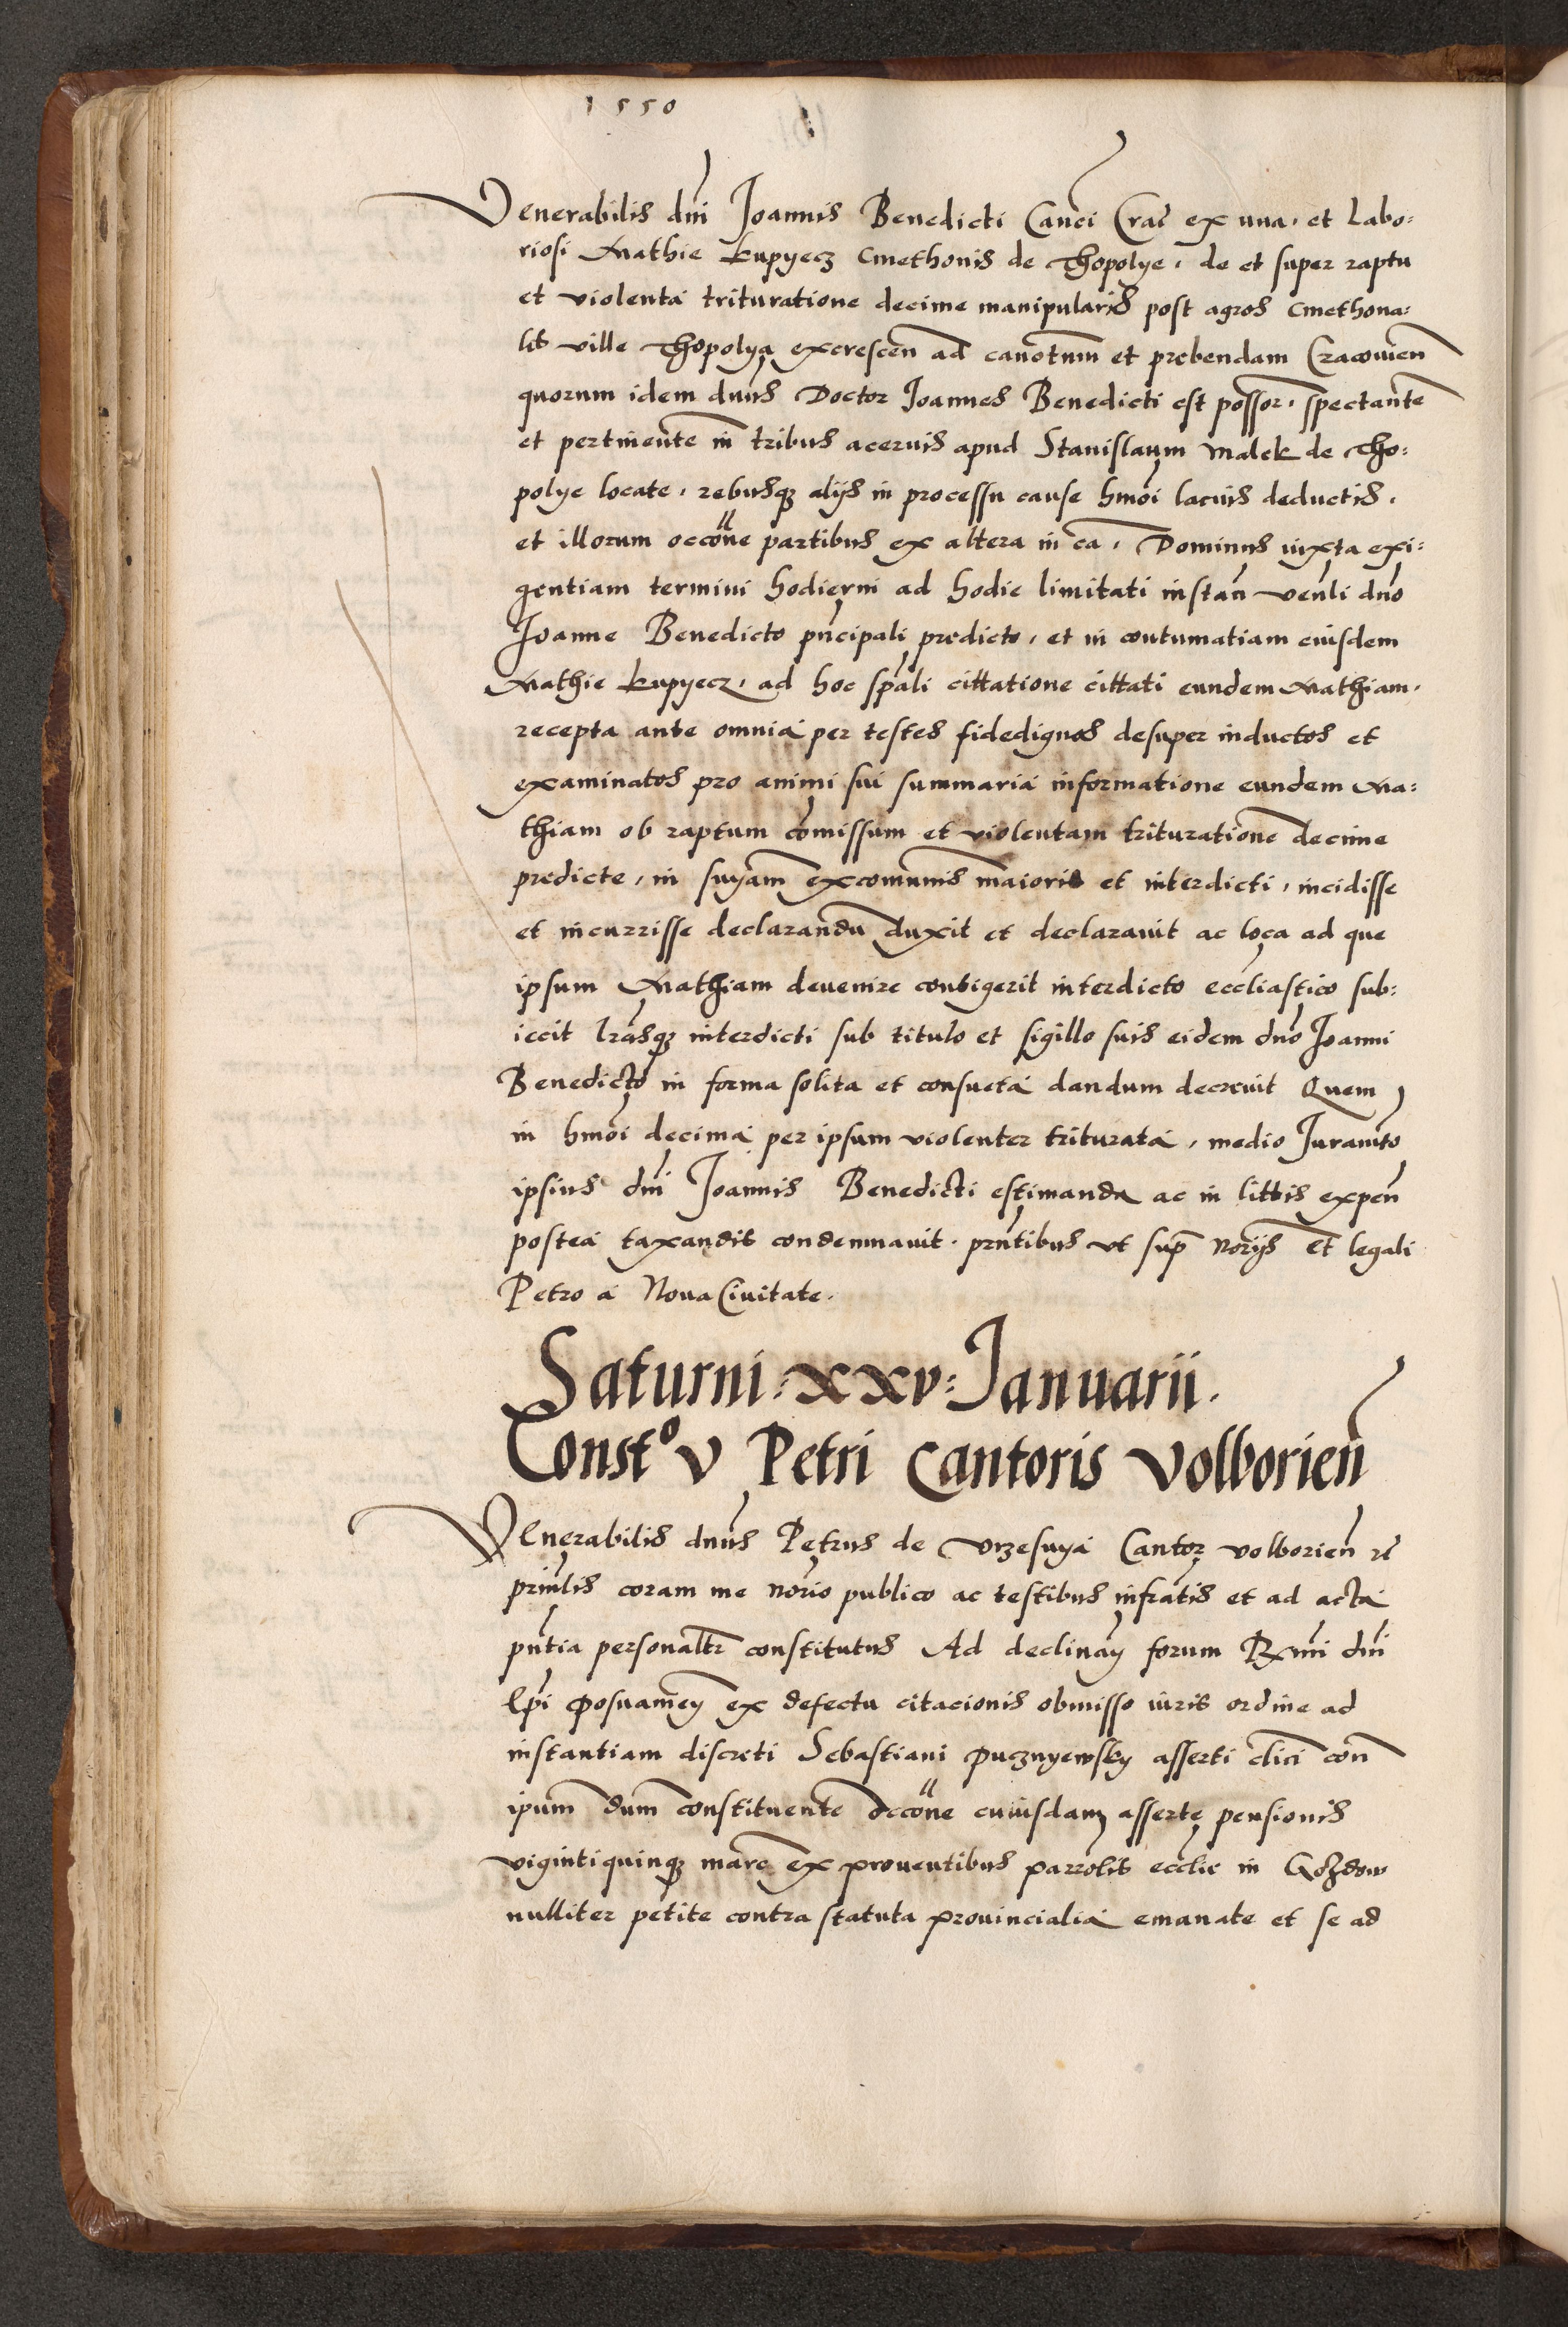 1550
Venerabilis dni Joannis Benedicti Canci Crac ex una. et Labo:
riosi Mathie Kupyecz Cmethonis de Thopolye. de et super raptu
et violenta trituratione decime manipularis post agros Cmethona:
lis ville Thopolya excrescen ad canotum et prebendam Cracovien
quorum idem dnus Doctor Joannes Benedicti est possor. spectante
et pertinente in tribus aceruis apud Stanislaum Malek de Tho:
polye locate. rebusq alijs in processu cause hmoi lacius deductis.
et illorum occone partibus ex altera in ca. Dominus iuxta exi:
gentiam termini hodierni ad hodie limitati instan venli dno
Joanne Benedicto pncipali predicto. et in contumatiam eiusdem
Mathie Kupyecz. ad hoc spali cittatione cittati eundem Mathiam.
recepta ante omnia per testes fidedignos desuper inductos et
examinatos pro animi sui summaria informatione eundem Ma:
thiam ob raptum comissum et violentam triturationé decime
predicte. in snyam excomunis maioris et interdicti. incidisse
et incurrisse declarandu duxit et declarauit ac loca ad que
ipsum Mathiam deuenire contigerit interdicto eccliastico sub:
iecit lrasq interdicti sub titulo et sigillo suis eidem dno Joanni
Benedicto in forma solita et consueta dandum decreuit Quem
in hmoi decima per ipsum violenter triturata. medio Juramto
ipsius dni Joannis Benedicti estimanda ac in littis expen
postea taxandis condemnauit. pntibus ut sup norijs et legali
Petro a Noua Ciuitate.
Saturni. xxv: Januarii.
Consto v Petri Cantoris volborien
Venerabilis dnus Petrus de Vrzesnya Cantor volborien
prinlis coram me norio publico ac testibus infratis et ad acta
pntia personalr constitutus Ad declinan forum Rmi dni
Epi Posnamen ex defectu citacionis obmisso iuris ordine ad
instantiam discreti Sebastiani Pucznyewsky asserti clici con
ipum dnm constituente occone cuiusdam asserte pensionis
viginti quinq marc ex prouentibus parrolis ecclie in Gozdow
nulliter petite contra statuta prouincialia emanate et se ad